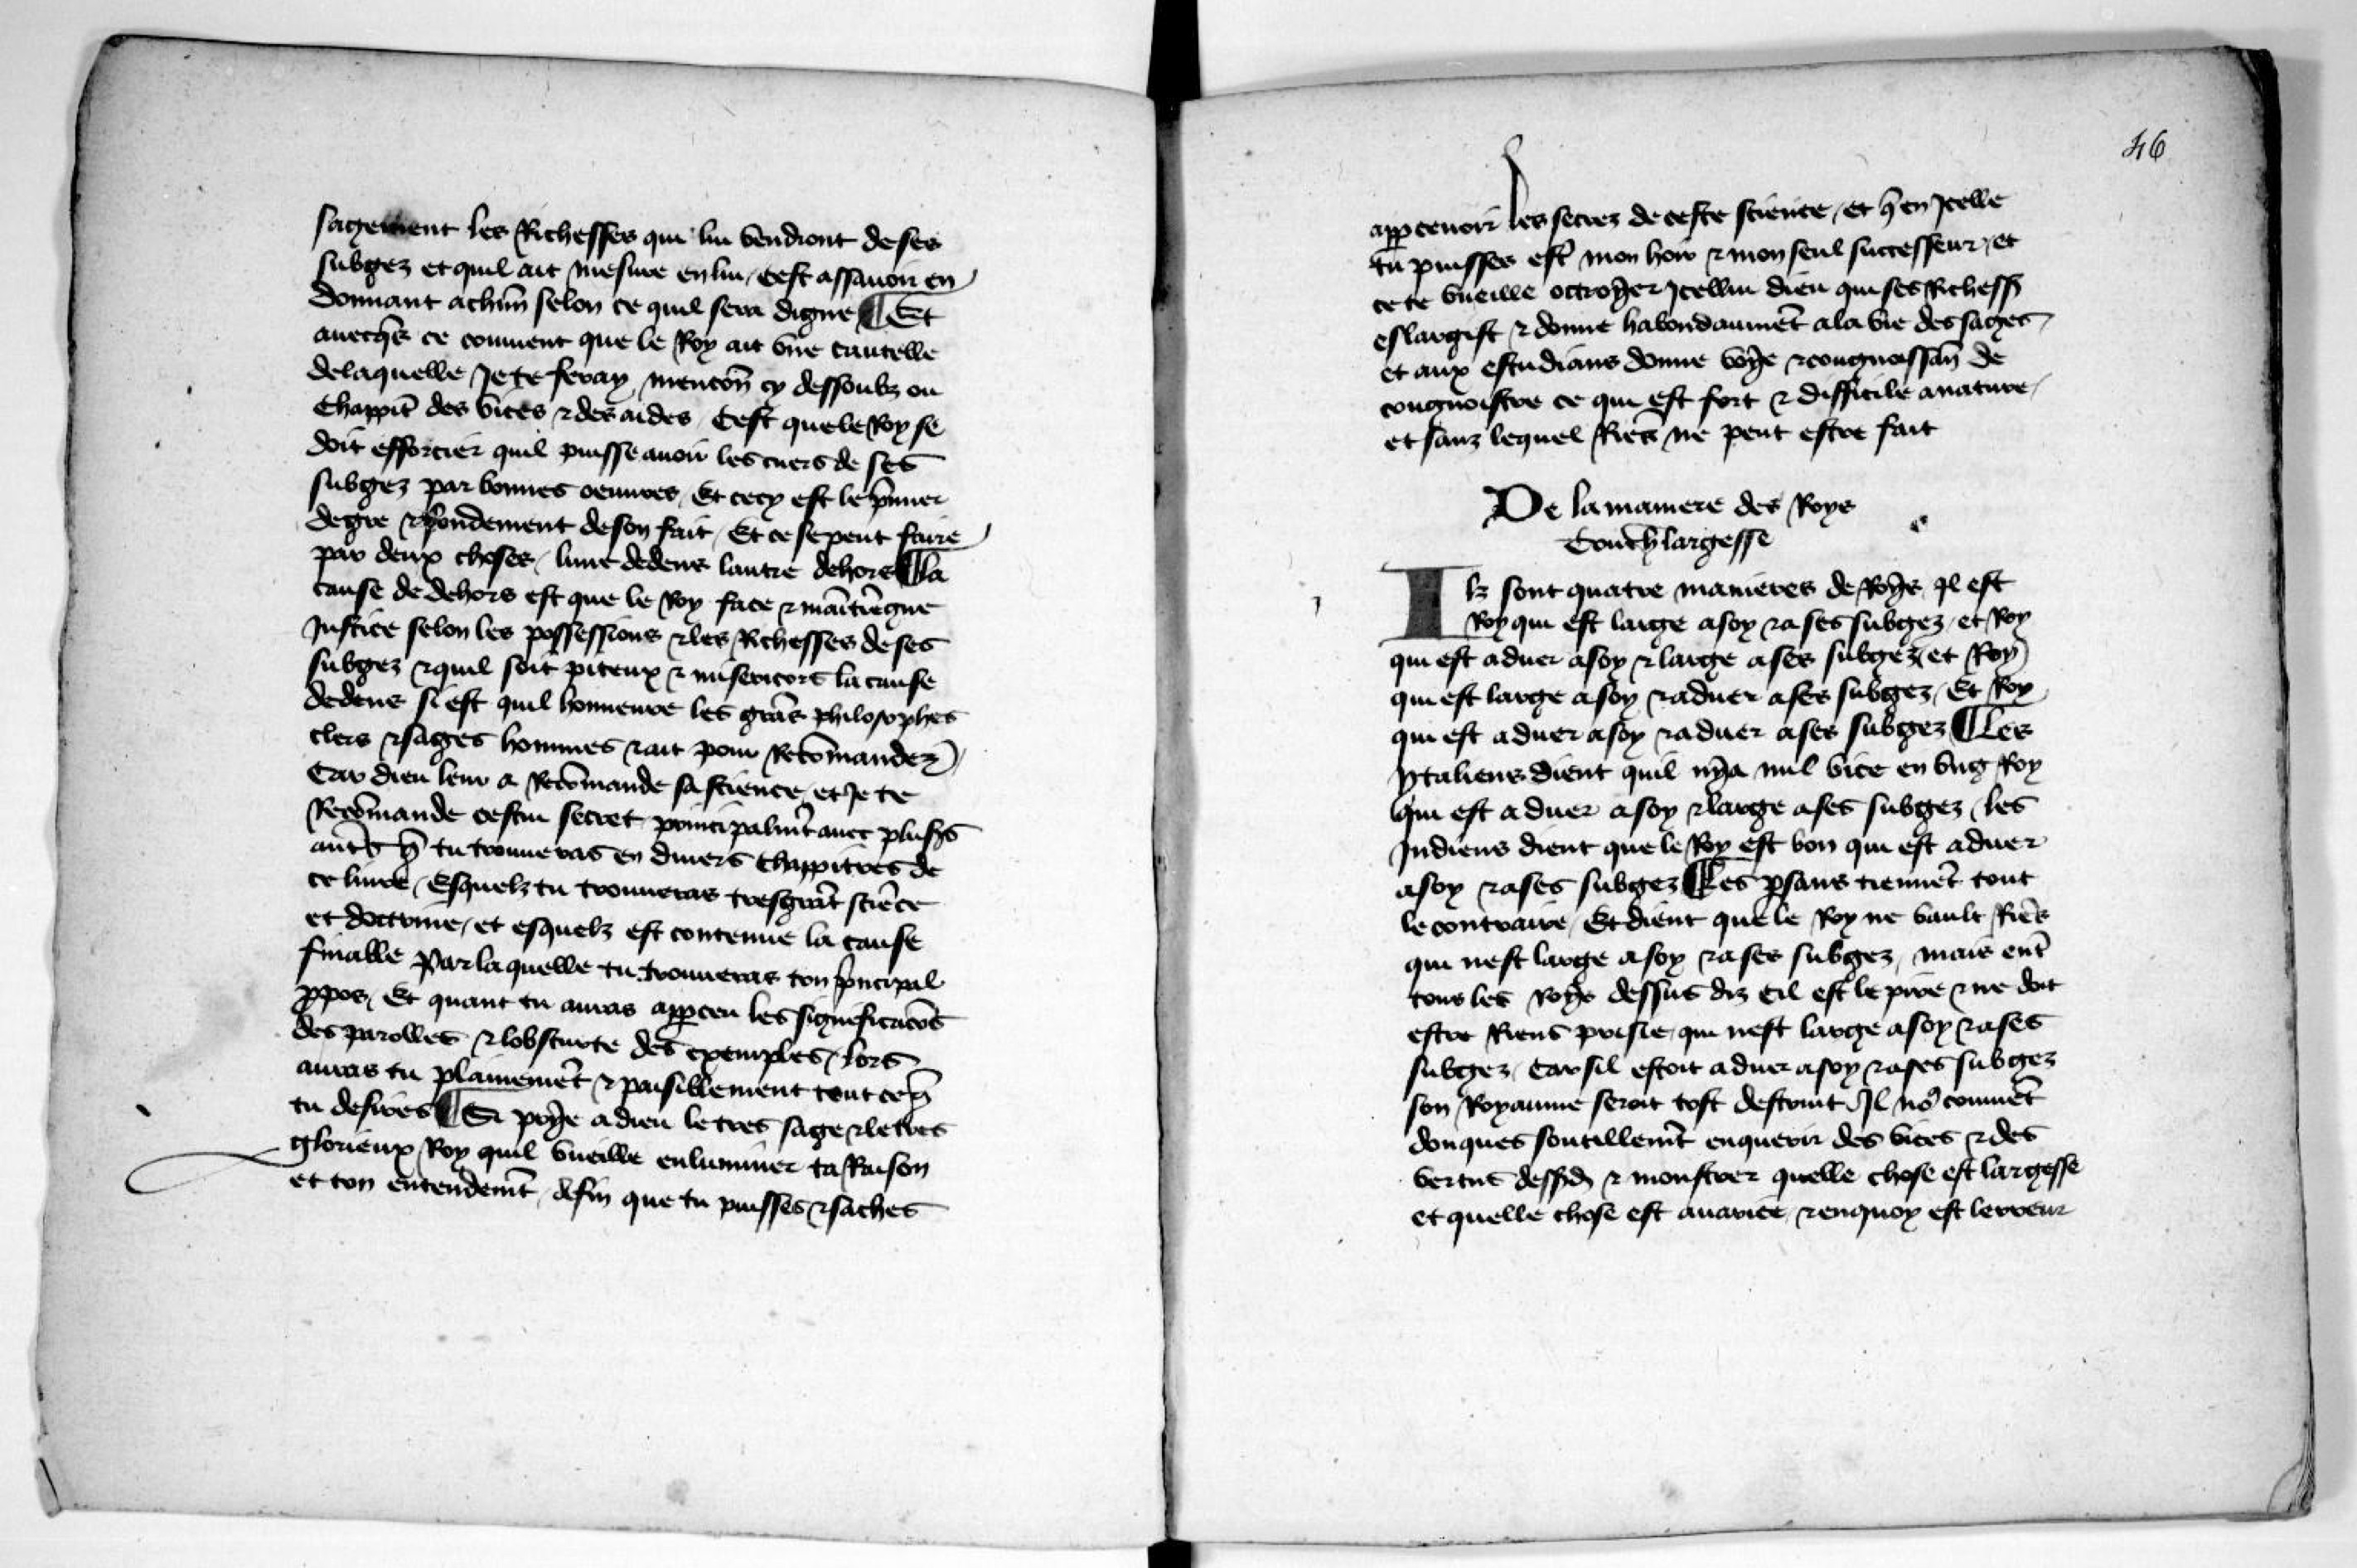 sagement les Richesses qui lui vendront de ses
subgez et quil ait mesure en lui, Cest assavoir en
donnant a chūn selon ce quil sera digne ¶ Et
avecq̄s ce convient que le Roy ait vne cautelle
de laquelle Je te feray mencōn cy dessoubz ou
Chappit̄ des vices ⁊ des aides, Cest que le Roy se
doit efforcier quil puisse avoir les cuers de ses
subgez par bonnes oeuvres, Et cecy est le p̄mier
degre ⁊ fondement de son fait, Et ce se peut faire
par deux choses, lune dedens lautre dehors ¶ la
cause de dehors est que le Roy face ⁊ maītiēgne
Justice selon les possessions ⁊ les Richesses de ses
subgez ⁊ quil soit piteux ⁊ misericors la cause
dedens si est quil honneure les grās philosophes
clers ⁊ sages hommes ⁊ ait pour Recōmandez,
Car dieu leur a Recōmande sa science, et Je te
Recōmande cestui secret principalmt̄ avec plusrs̄
autrs̄ q̄ tu trouveras en divers Chappitres de
ce livre, Esquelz tu trouveras tresgrāt sciēce
et doctrine, et esquelz est contenue la cause
finalle Par laquelle tu trouveras ton p̄ncipal
ppos, Et quant tu auras apperceu les significacōs
des parolles ⁊ lobscurte des exemples, lors
auras tu plainemēt ⁊ paisiblement tout ce q̄
tu desires ¶ Si prye a dieu le tres sage ⁊ le tres
glorieux Roy quil vueille enluminer ta Raison
et ton entendemt̄, Afin que tu puisses ⁊ saches
46
appercevoir les secrez de ceste science, et q̄ en Icelle
tu puisses est̄ mon hoir ⁊ mon seul successeur, et
ce te vueille octroyer Icellui dieu qui ses Richess̄
eslargist ⁊ donne habondaumēt a la vie des sages,
et aux estudians donne voye ⁊ congnoissān de
congnoistre ce qui est fort ⁊ difficile a nature,
et sanz lequel Riēs ne peut estre fait
De la maniere des Roys
Touch̄ largesse
Ilz sont quatre manieres de Roys, Il est
Roy qui est large a soy ⁊ a ses subgez, et Roy
qui est aduer a soy ⁊ large a ses subgez, et Roy
qui est large a soy ⁊ aduer a ses subgez, Et Roy
qui est aduer a soy ⁊ aduer a ses subgez ¶ Les
ytaliens dient quil nya nul vice en vng Roy
qui est aduer a soy ⁊ large a ses subgez, les
Indiens dient que le Roy est bon qui est aduer
a soy ⁊ a ses subgez ¶ Les p̱sans tiennēt tout
le contraire, Et dient que le Roy ne vault Riēs
qui nest large a soy ⁊ a ses subgez, mais ent̄
tous les Roys dessus diz cil est le pire ⁊ ne doit
estre Riens prisie, qui nest large a soy ⁊ a ses
subgez, Car sil estoit aduer a soy ⁊ a ses subgez
son Royaume seroit tost destruit Il no9 convient̄
donques soutillemt̄ enquerir des vices ⁊ des
vertus dessusd̄ ⁊ monstrer quelle chose est largesse
et quelle chose est avarice, ⁊ en quoy est lerreur